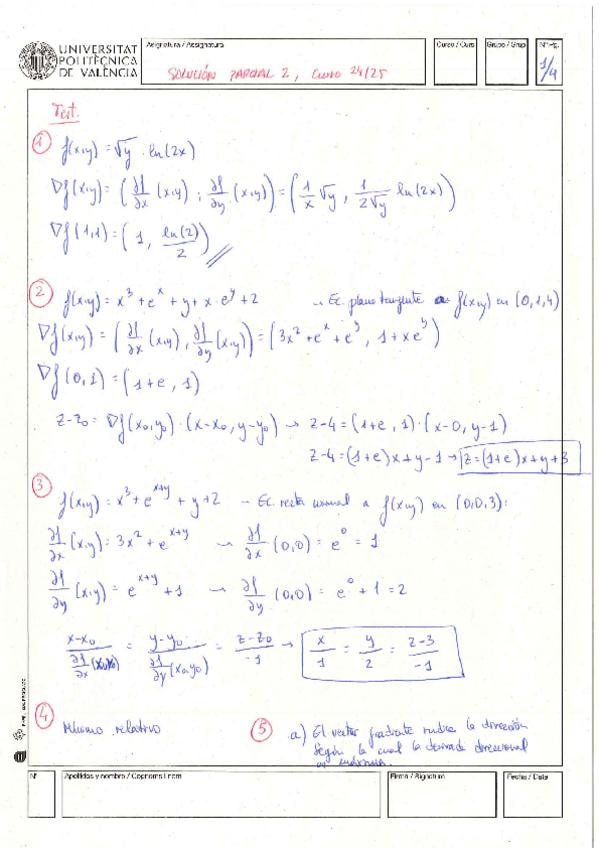 UNIVERSITAT
POLITÈCNICA
DE VALÈNCIA
Asignatura / Assignatura
SOLUCIÓN PARCIAL 2, Curso 24/25
Curso / Curs
Grupo / Grup
Nº Pg.
1/4
Test.
1 f(x,y) = √y · ln(2x)
∇f(x,y) = (∂f/∂x (x,y), ∂f/∂y (x,y)) = (1/x √y, 1/(2√y) ln(2x))
∇f(1,1) = (1, ln(2)/2)
2 f(x,y) = x³ + e^x + y + x·e^y + 2 → Ec. plano tangente a f(x,y) en (0,1,4)
∇f(x,y) = (∂f/∂x (x,y), ∂f/∂y (x,y)) = (3x² + e^x + e^y, 1 + xe^y)
∇f(0,1) = (1+e, 1)
z-z₀ = ∇f(x₀,y₀)·(x-x₀, y-y₀) → z-4 = (1+e, 1)·(x-0, y-1)
z-4 = (1+e)x + y - 1 → z = (1+e)x + y + 3
3 f(x,y) = x³ + e^(x+y) + y + 2 → Ec. recta normal a f(x,y) en (0,0,3):
∂f/∂x (x,y) = 3x² + e^(x+y) → ∂f/∂x (0,0) = e⁰ = 1
∂f/∂y (x,y) = e^(x+y) + 1 → ∂f/∂y (0,0) = e⁰ + 1 = 2
(x-x₀)/(∂f/∂x (x₀,y₀)) = (y-y₀)/(∂f/∂y (x₀,y₀)) = (z-z₀)/-1 → x/1 = y/2 = (z-3)/-1
4 Mínimo relativo
5 a) El vector gradiente indica la dirección
según la cual la derivada direccional
es máxima.
Nº
Apellidos y nombre / Cognoms i nom
Firma / Signatura
Fecha / Data